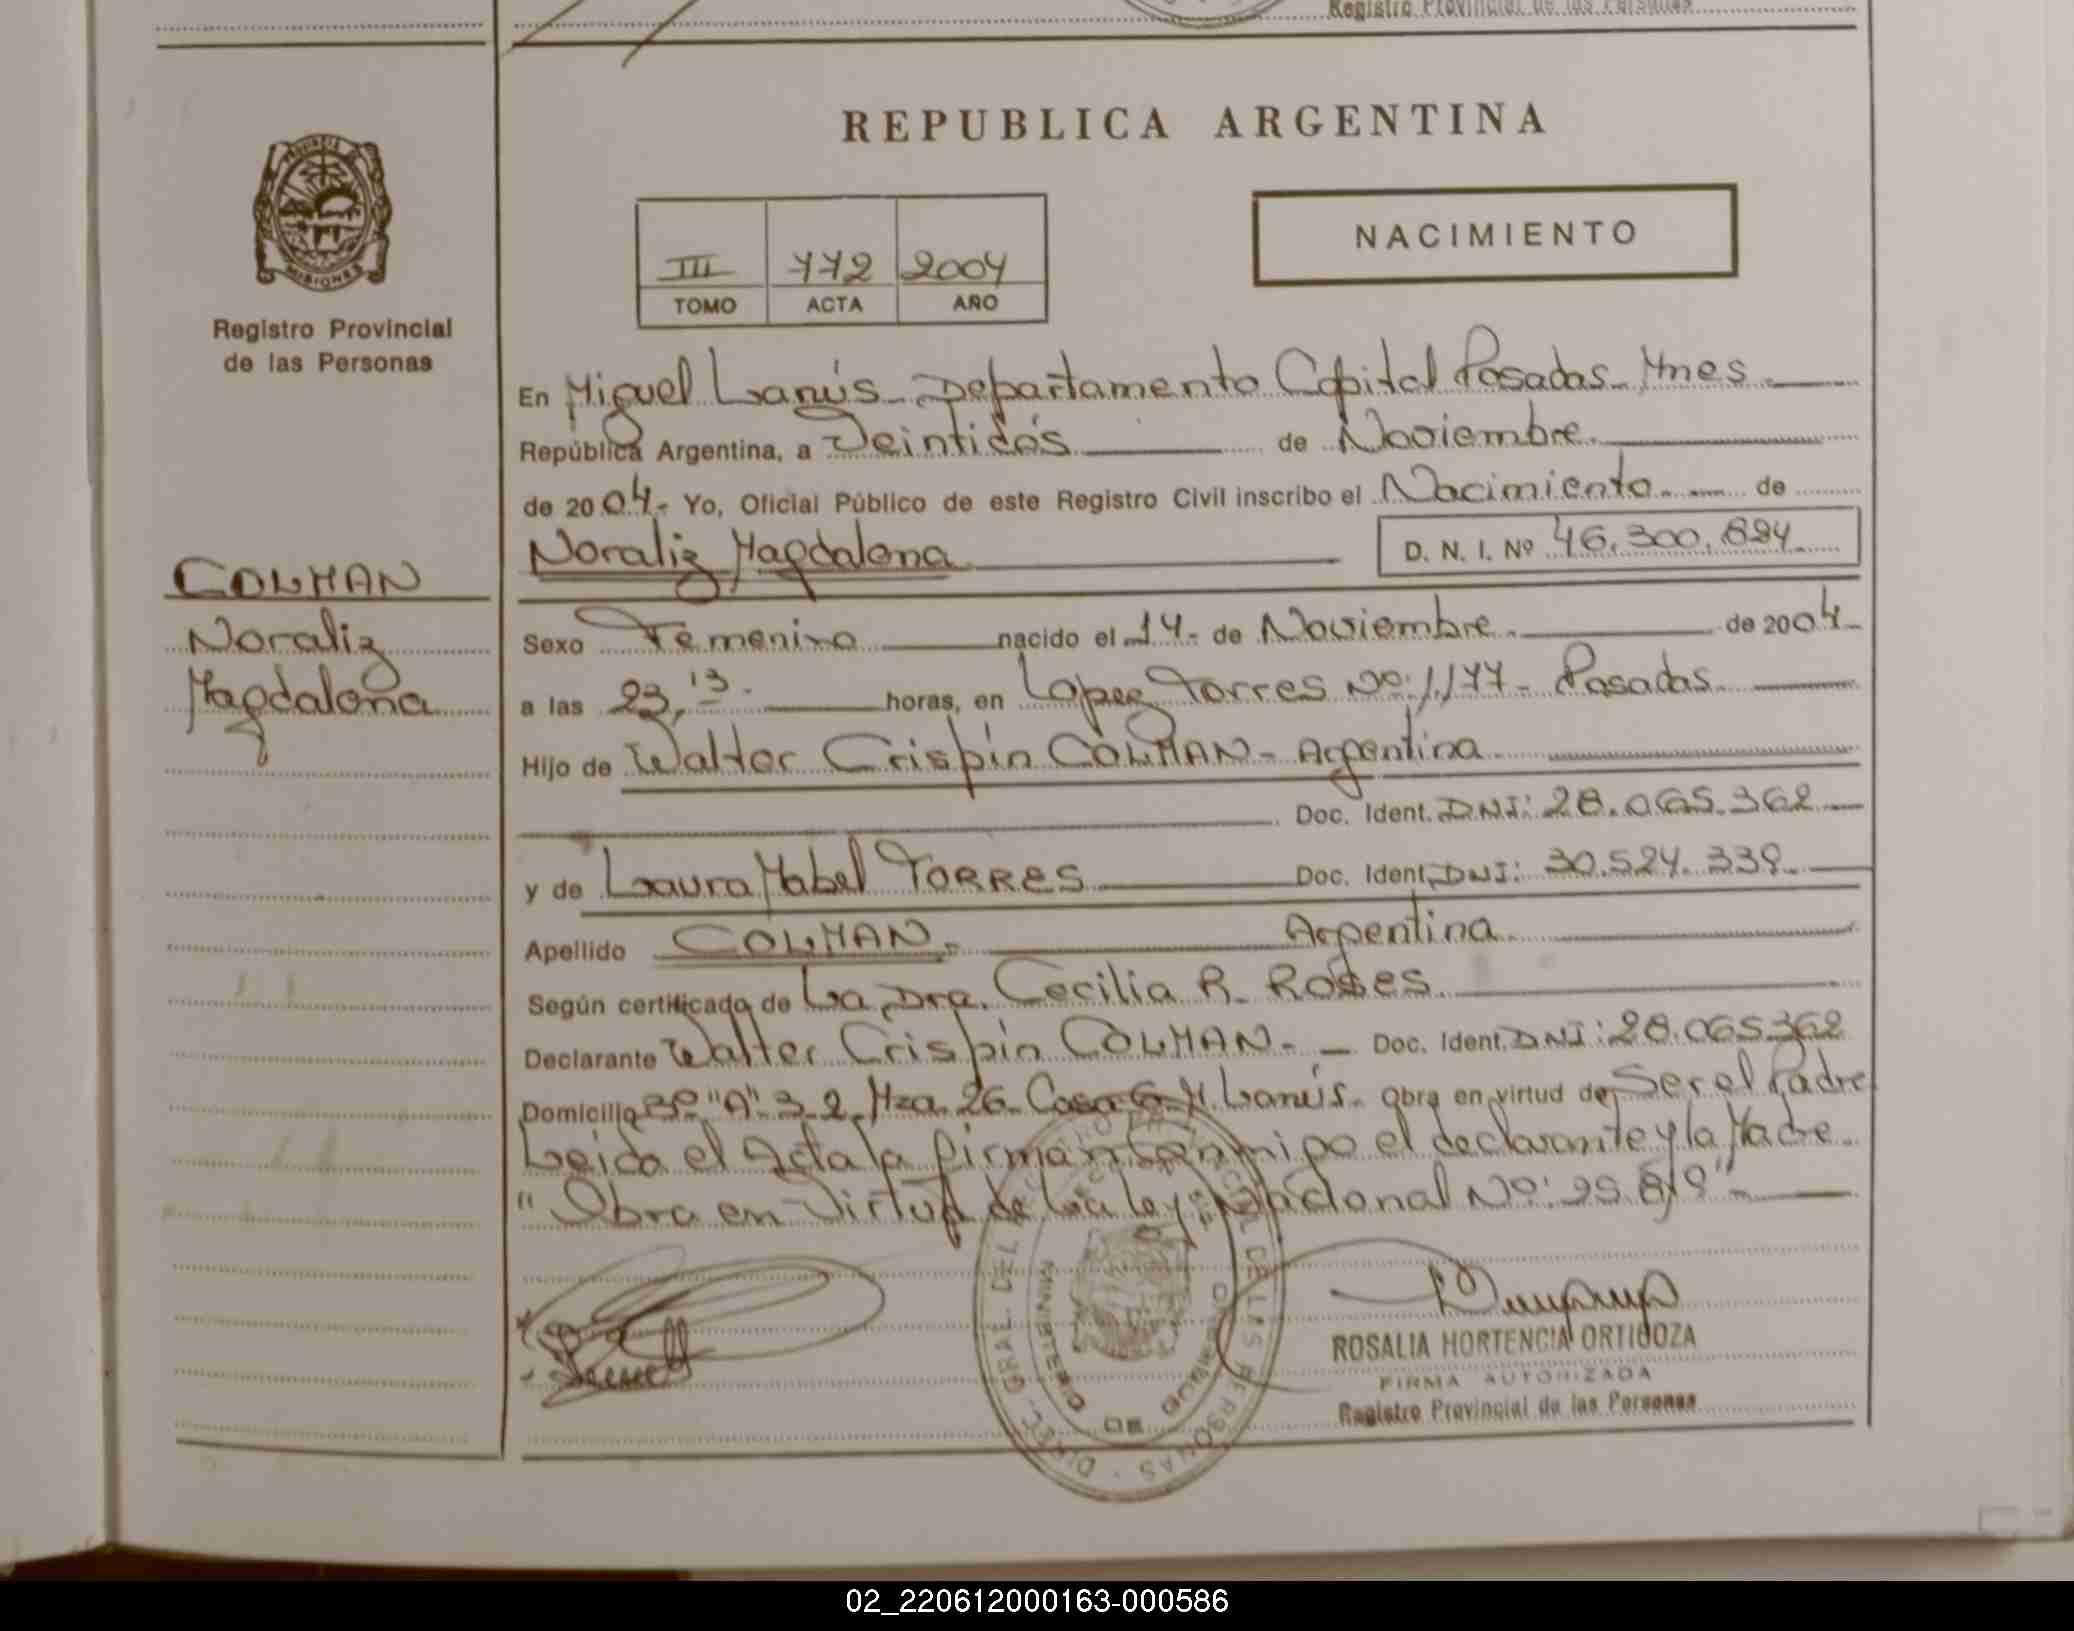 Registro Provincial de las Personas
REPUBLICA ARGENTINA
PROVINCIA DE
MISIONES
Registro Provincial
de las Personas
III 772 2004
TOMO ACTA AÑO
NACIMIENTO
En Miguel Lanús - Departamento Capital Posadas - Mnes
República Argentina, a Veintidós de Noviembre
de 2004 - Yo, Oficial Público de este Registro Civil inscribo el Nacimiento de
Noraliz Magdalena D. N. I. Nº 46.300.894
COLMAN
Noraliz
Magdalena
Sexo Femenino nacido el 14 - de Noviembre de 2004 -
a las 23,13 - horas, en Lopez Torres Nº: 1177 - Posadas
Hijo de Walter Crispín COLMAN - Argentina
Doc. Ident. DNI: 28.065.362
y de Laura Mabel TORRES Doc. Ident. DNI: 30.524.339
Apellido COLMAN - Argentina
Según certificado de La Dra. Cecilia R.
Declarante Walter Crispín COLMAN - Doc. Ident. DNI: 28.065362
Domicilio Bº "A" 3-2, Mza 26 - Casa 6 - M. Lanús - Obra en virtud de Ser el Padre
Leida el Acta la firman conmigo el declarante y la Madre
"Obra en Virtud de la ley Nacional Nº: 25.819" -
ROSALIA HORTENCIA ORTIGOZA
FIRMA AUTORIZADA
Registro Provincial de las Personas
MINISTERIO DE GOBIERNO
02_220612000163-000586